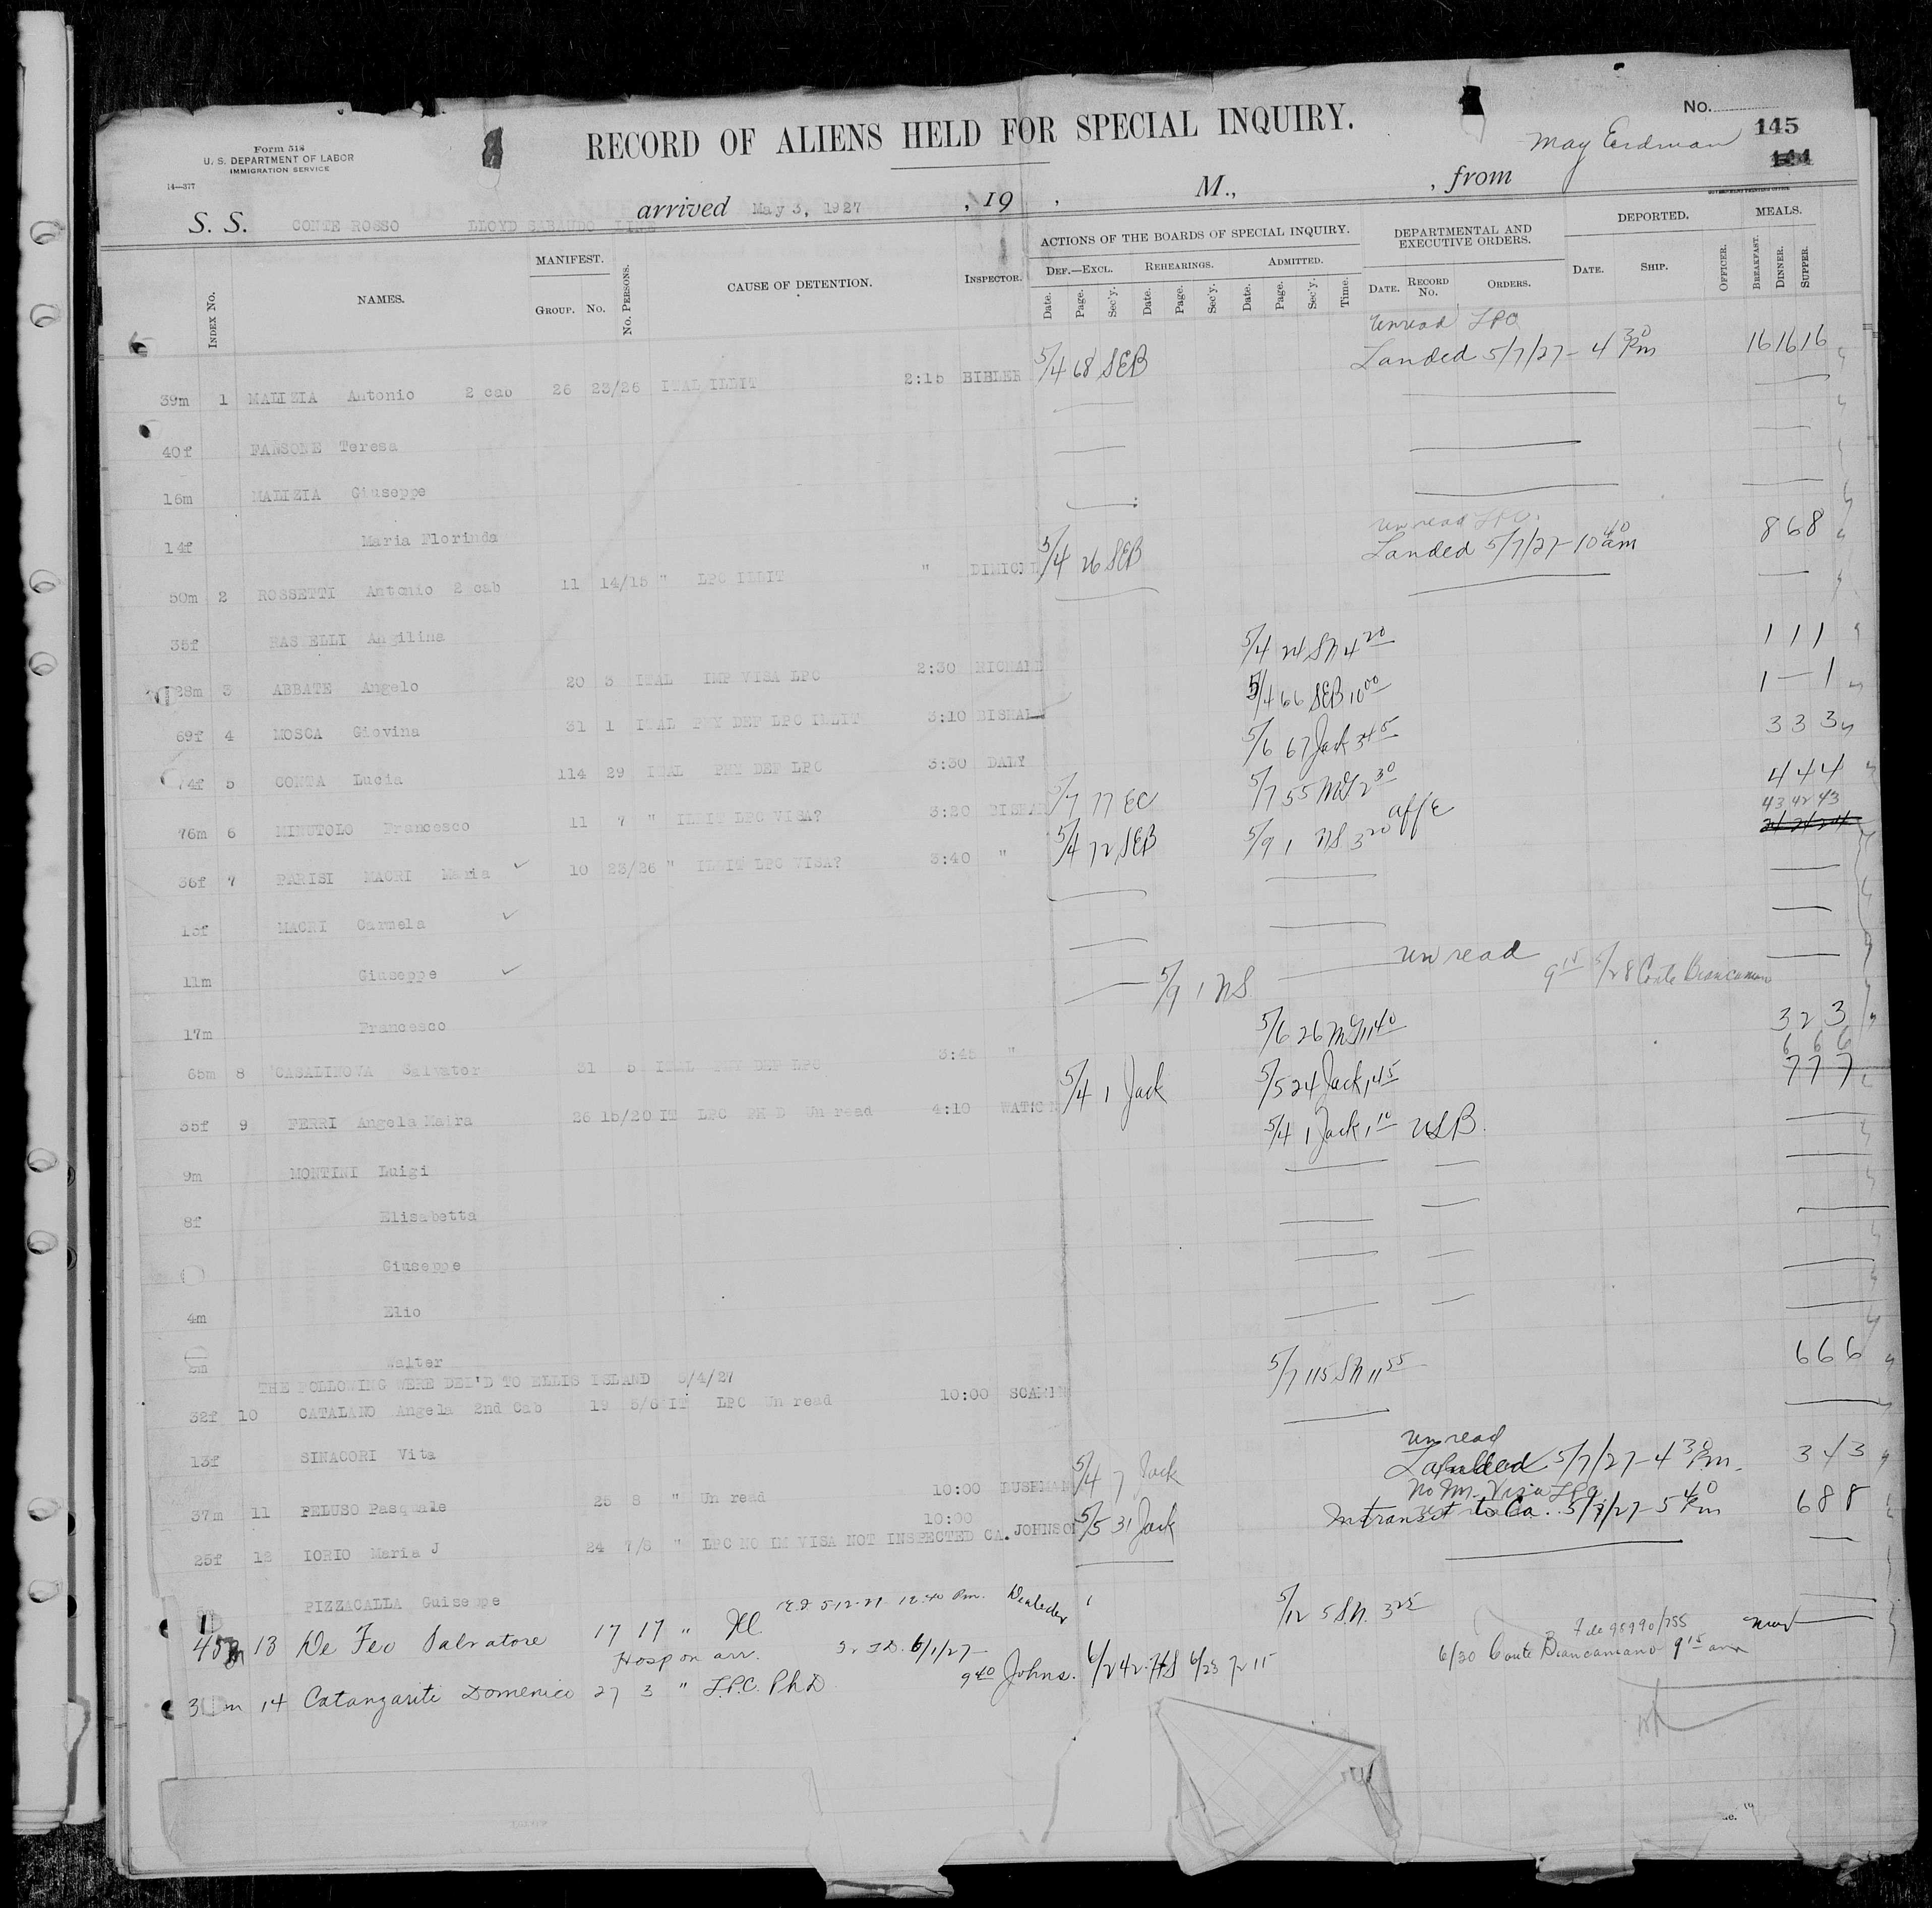 No.
RECORD OF ALIENS HELD FOR SPECIAL INQUIRY.
May Erdman 145
144
Form 518
U. S. DEPARTMENT OF LABOR
IMMIGRATION SERVICE
14—377
S. S. CONTE ROSSO LLOYD SABAUDO LINE arrived May 3, 1927 , 19 , M., , from
ACTIONS OF THE BOARDS OF SPECIAL INQUIRY. DEPARTMENTAL AND EXECUTIVE ORDERS. DEPORTED. MEALS.
INDEX NO. NAMES. MANIFEST. GROUP. NO. NO. PERSONS. CAUSE OF DETENTION. INSPECTOR.
DEF.—EXCL. REHEARINGS. ADMITTED.
Date. Page. Sec'y. Date. Page. Sec'y. Date. Page. Sec'y. Time. DATE. RECORD NO. ORDERS. DATE. SHIP. OFFICER. BREAKFAST. DINNER. SUPPER.
Unread LPC
39m 1 MALIZIA Antonio 2 cab 26 23/26 ITAL ILLIT 2:15 BIBLER 5/4 68 SEB Landed 5/7/27 - 4 30 Pm 16 16 16
40f FANSONE Teresa
16m MALIZIA Giuseppe
14f Maria Florinda
unread LPC.
50m 2 ROSSETTI Antonio 2 cab 11 14/15 " LPC ILLIT " 5/4 26 SEB Landed 5/7/27 - 10 40 am 8 6 8
35f RASELLI Angilina
28m 3 ABBATE Angelo 20 3 ITAL IMP VISA LPC 2:30 RICHARD 5/4 24 SN 4 20 1 1 1
69f 4 MOSCA Giovina 31 1 ITAL PHY DEF LPC ILLIT 3:10 5/4 66 SEB 10 00 1 — 1
74f 5 CONTA Lucia 114 29 ITAL PHY DEF LPC 3:30 DALY 5/6 67 Jack 3 45 3 3 3
76m 6 MINUTOLO Francesco 11 7 " ILLIT LPC VISA? 3:20 5/7 77 EC 5/7 55 McG 2 30 4 4 4
43 42 43
36f 7 PARISI MACRI Maria 10 23/26 " ILLIT LPC VISA? 3:40 " 5/4 72 SEB 5/9 1 NS 3 20 24 24 24
MACRI Carmela
11m Giuseppe
17m Francesco 5/9 1 NS unread 9 15 5/28 Conte Biancamano
65m 8 CASALINOVA Salvator 31 5 ITAL PHY DEF LPC 3:45 " 5/6 26 McG 11 40 3 2 3
6 6 6
35f 9 FERRI Angela Maira 26 15/20 IT LPC PH D Un read 4:10 WATSON 5/4 1 Jack 5/5 24 Jack 1 45 7 7 7
9m MONTINI Luigi 5/4 1 Jack 1 10 USB.
8f Elisabetta
Giuseppe
4m Elio
Walter
THE FOLLOWING WERE DEL'D TO ELLIS ISLAND 5/4/27
32f 10 CATALANO Angela 2nd Cab 19 5/6 IT LPC Un read 10:00 5/7 115 SN 11 55 6 6 6
13f SINACORI Vita
unread
37m 11 PELUSO Pasquale 25 8 " Un read 10:00 BUSHMAN 5/4 7 Jack Landed 5/7/27 - 4 30 Pm. 3 / 3
No Im. Visa LPC
10:00
25f 12 IORIO Maria J 24 7/8 " LPC NO IM VISA NOT INSPECTED CA. JOHNSON 5/5 31 Jack Intransit to Ca. 5/7/27 - 5 40 Pm 6 8 8
PIZZACALLA Guiseppe
45m 13 De Feo Salvatore 17 17 " 5-12-27 12:40 Pm. 5/12 5 SN. 3 25
Hosp on arr. 6/1/27 File 98990/755
3 m 14 Catanzariti Domenico 27 3 " L.P.C. Ph D 9 40 Johns. 6/2 42 HS 6/23 72 11 6/30 Conte Biancamano 9 15 am